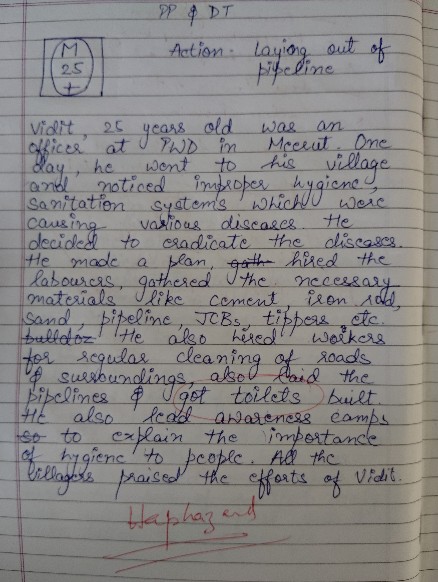 PP & DT
M
25
+
Action - Laying out of
pipeline
Vidit, 25 years old was an
officer at PWD in Meerut. One
day, he went to his village
and noticed improper hygiene,
sanitation systems which were
causing various diseases. He
decided to eradicate the diseases.
He made a plan, gath hired the
labourers, gathered the necessary
materials like cement, iron rod,
sand, pipeline, JCBs, tippers etc.
bulldoz He also hired workers
for regular cleaning of roads
& surroundings, also laid the
pipelines & got toilets built.
He also lead awareness camps
so to explain the importance
of hygiene to people. All the
villagers praised the efforts of Vidit.
Haphazard